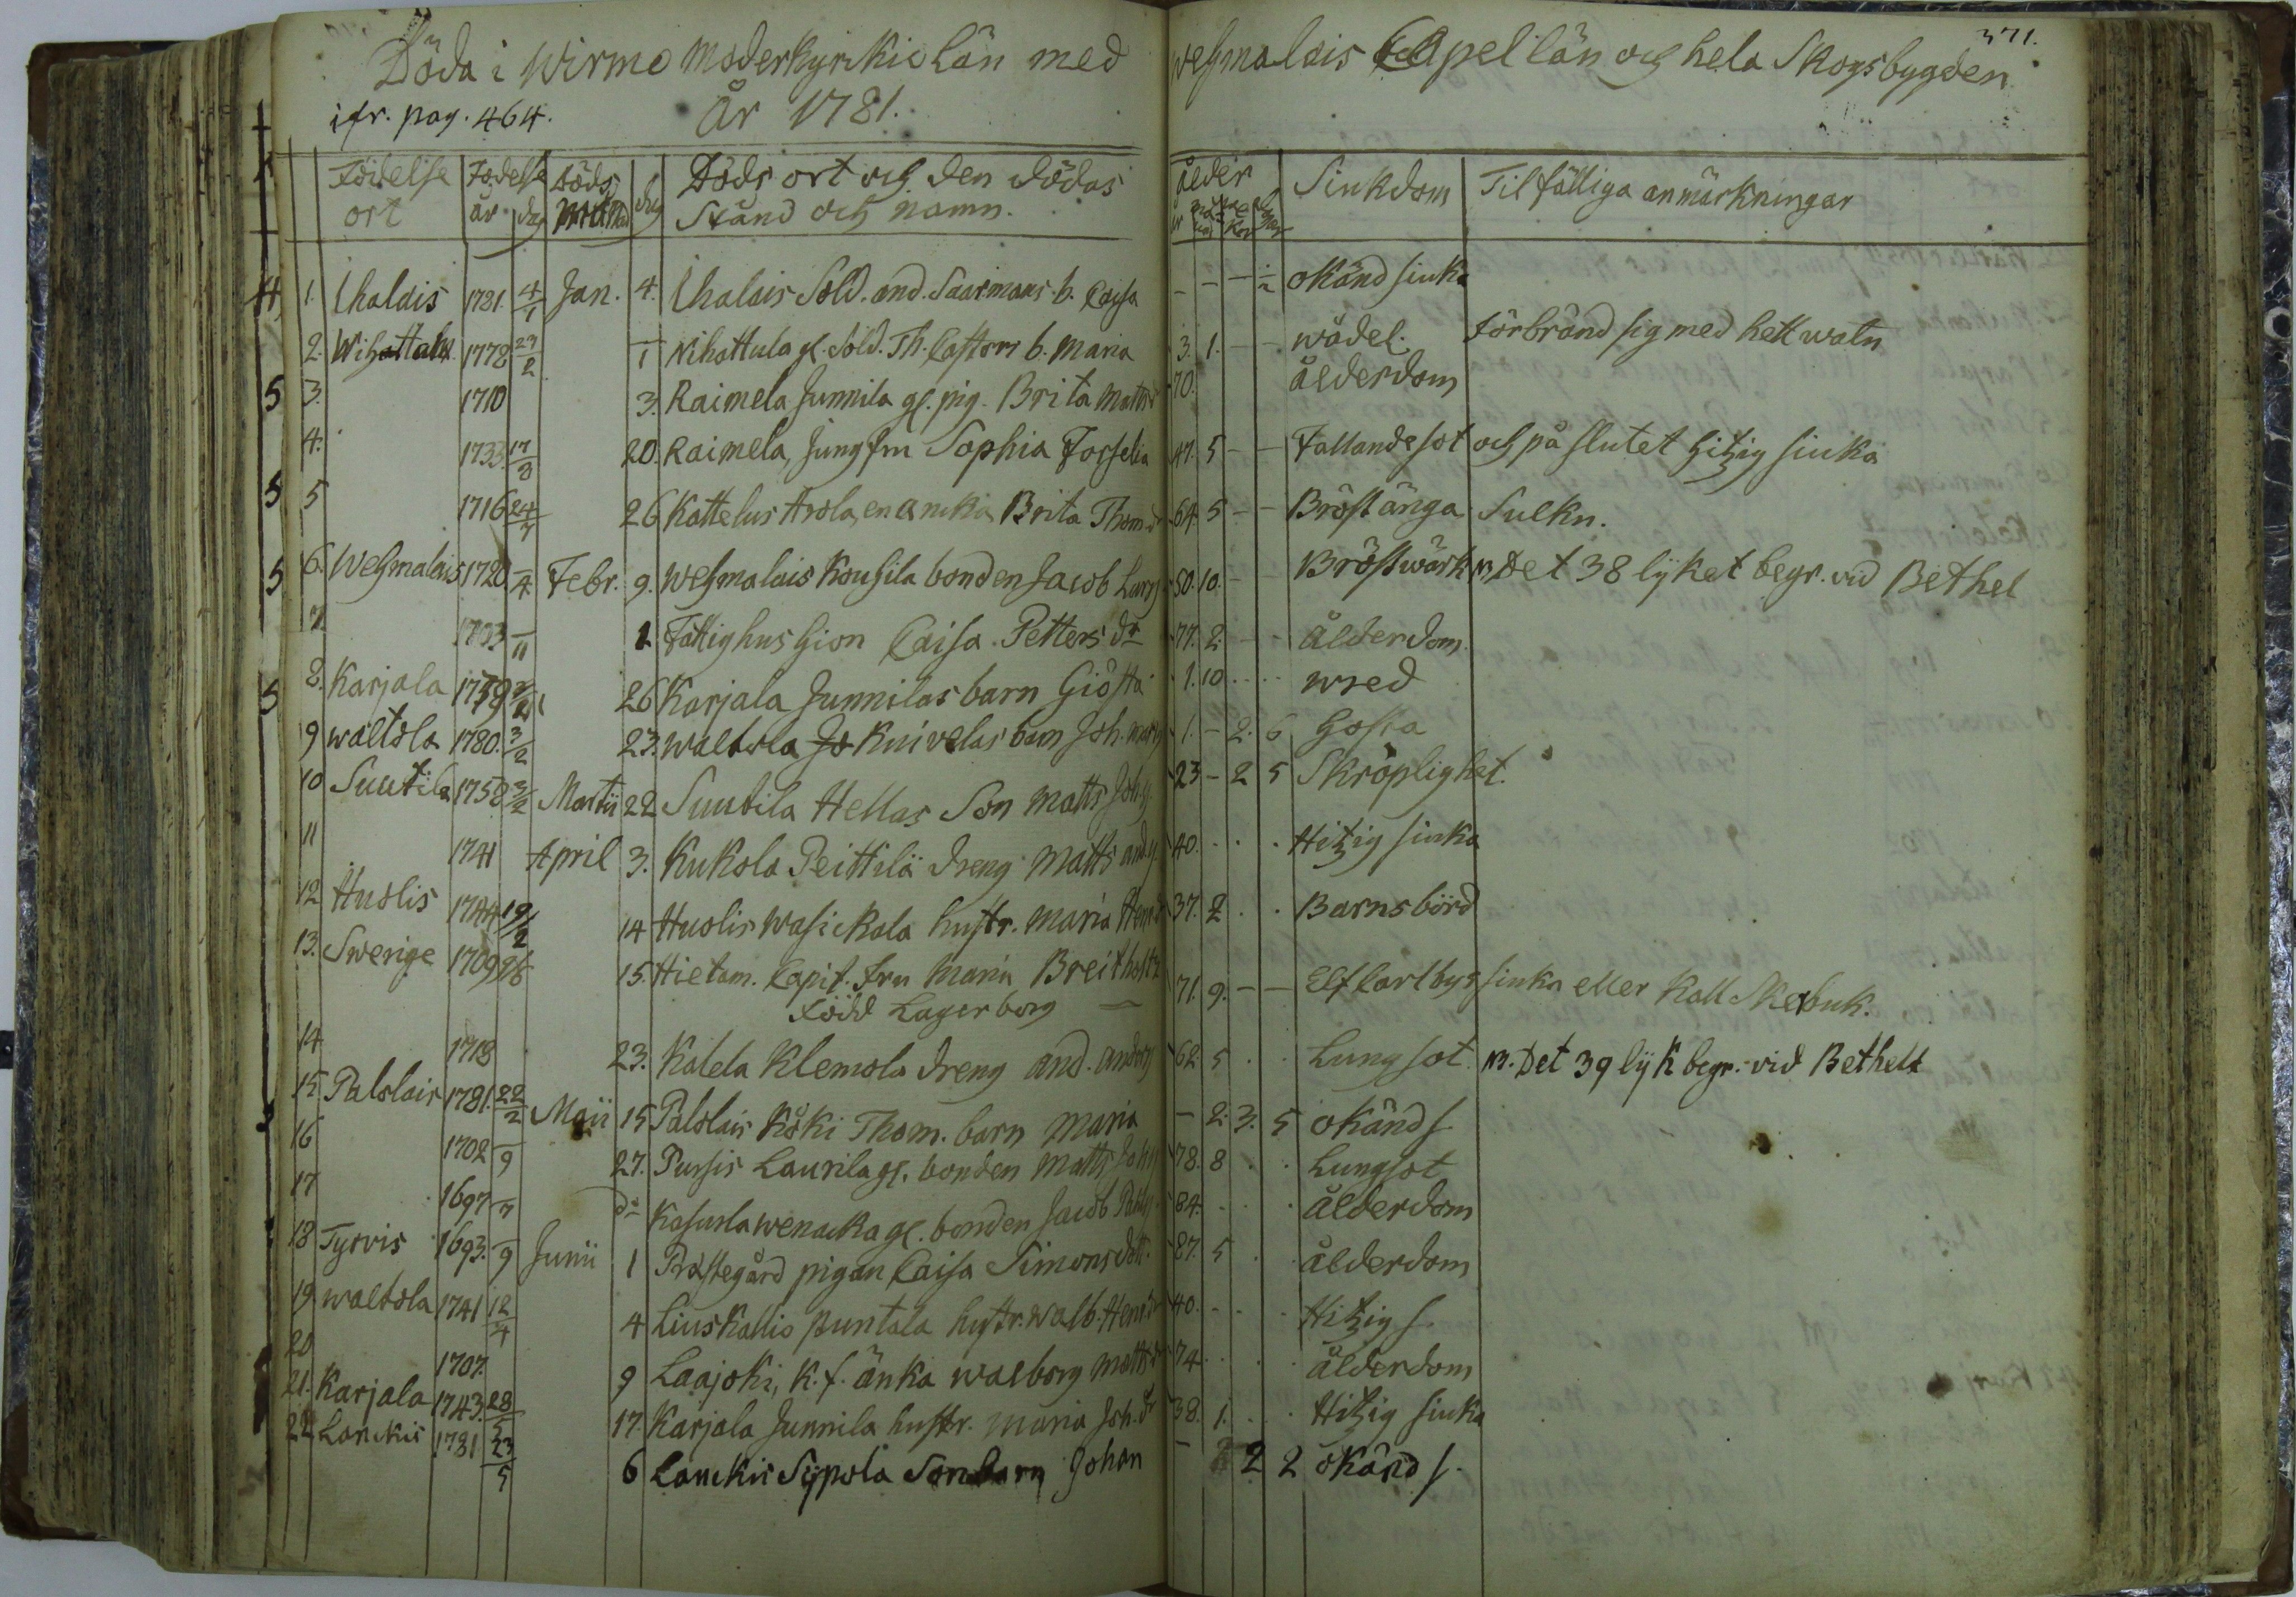 371.
Döda i Wirmo Moderkyrkio Län med Wehmalais Capel län och hela Skogsbygden
ifr. pag. 464. År 1781.
Födelse ort Födelse år dag Döds månad dag Döds ort och den dödas Stånd och namn. ålder Siukdom Tilfälliga anmärkningar
1. Ihalais 1781. 4/1 Jan. 4. Ihalais Sold. And. Saarmans b. Caisa - - - ½ okänd siuka
2. Nihattula 1778 27/2 7 Nihattula gl. Sold. Th. Castors b. Maria 3. 1. - - wådel. Förbränd sig med hett watn
3. 1710 3. Raimela Junnila gl. pig. Brita Mattsdr 70. ålderdom
4. 1733. 17/8 20. Raimela, Jungfru Sophia Forselia 47. 5 - - Fallandesot och på slutet hitzig siuka
5 1716 24/7 26 Kattelus Arola, en ancka Brita Thom. dr 64. 5 - - Bröstånga Sulkn.
6. Wehmalais 1720. -/4 Febr. 9. Wehmalais Kousila bonden Jacob Larss. 50. 10. - - Bröstwärk N. Det 38 lyket begr. vid Bethel
7. 1703 -/11 1 Fattighushion Caisa Petters dr 77. 2. - - Ålderdom.
8. Karjala 1779 26 Karjala Junnilas barn Giösta 1. 10 . . wred
9 waltola 1780. 3/2 23. waltola Jo Knivelas barn Joh. 1. - 2. 6 Hosta
10 Suutila 1758 3/2 Martii 22 Suutila Hellas Son Matts Joh. 23 - 2 5 Skröplighet.
11 1741 April 3. Kukola Peittilä dreng Matts 40. . . . Hitzig siuka
12 Huolis 1744 19/2 14 Huolis Wasickala hustr. Maria 37. 2 . . Barnsbörd
13. Swerige 1709 9/8 15. Hietam. Capit. Fru Maria Breitholtz Född Lagerborg 71. 9. - - Elfkarlbys siuka eller kall Skörbuk.
14 1718 23. Kalela Klemola dreng And. Anders 62 5 . . Lungsot. N. Det 39 lyk begr. vid Bethel
15. Palolais 1781. 22/2 Maii 15 Palolais Köki Thom. barn Maria - 2. 3. 5 okänd s.
16 1702 -/9 27. Pursis Laurila gl. bonden Matts Joh. 78. 8 . . Lungsot
17 1697 -/7 do wenacka gl. bonden Jacob 84. . . . ålderdom
18 Tyrvis 1693. -/9 Junii 1 Prästegård pigan Caisa Simonsdott. 87. 5 . . ålderdom
19 waltola 1741 12/4 4 Liuskallio puntala hustr. Walb. Henr. dr 40. . . . Hitzig s.
20 1707. 9 Laajoki, K. f. änka Walborg Matts dr 74. . . . ålderdom
21. Karjala 1743. 28/5 17. Karjala Junnila hustr. Maria Joh. dr 38. 1. . . Hitzig siuka
22 Lanckis 1781 23/5 6 Lanckis Sypola Sonbarn Johan - 2 2 okänd s.